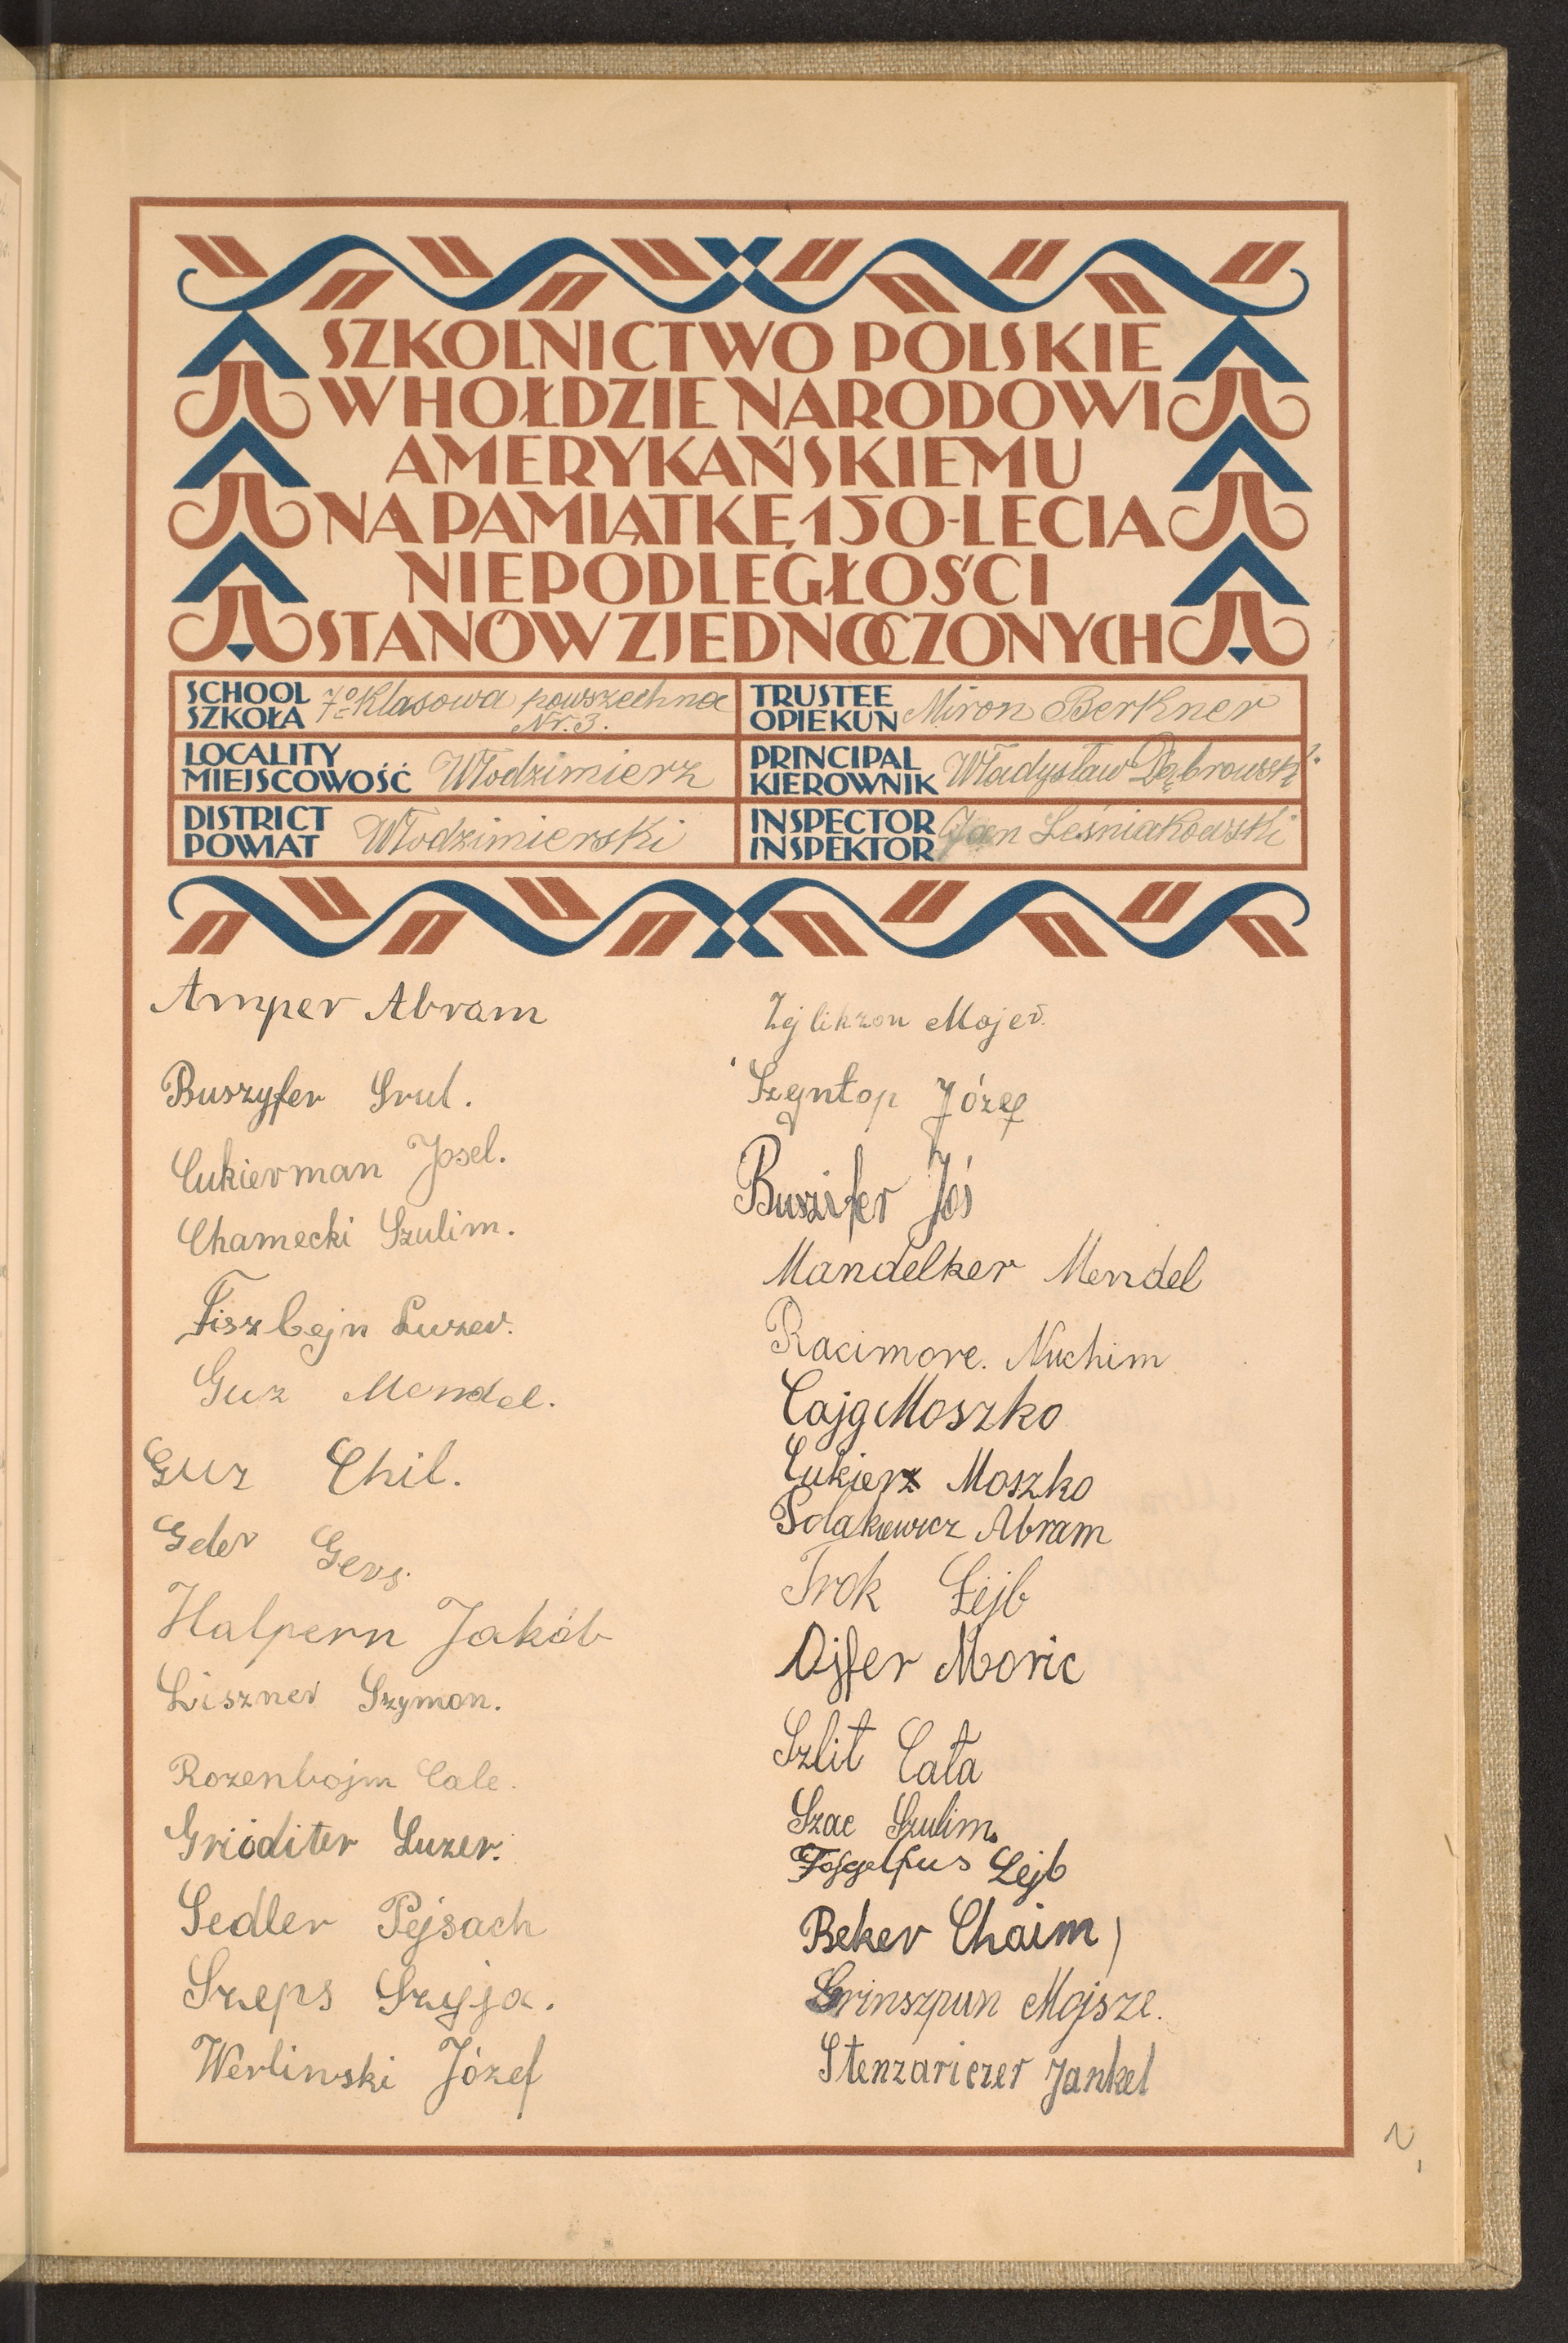 SZKOLNICTWO POLSKIE
W HOŁDZIE NARODOWI
AMERYKAŃSKIEMU
NA PAMIĄTKĘ 150-LECIA
NIEPODLEGŁOŚCI
STANÓW ZJEDNOCZONYCH
SCHOOL
SZKOŁA
7o Klasowa powszechna
Nr. 3.
TRUSTEE
OPIEKUN
Miron Berkner
LOCALITY
MIEJSCOWOŚĆ
Włodzimierz
PRINCIPAL
KIEROWNIK
Władysław Dąbrowski
DISTRICT
POWIAT
Włodzimierski
INSPECTOR
INSPEKTOR
Jan Leśniakowski
Amper Abram
Buszyfer Srul.
Cukierman Josel.
Chamecki Szulim.
Fiszbejn Luzer.
Guz Mendel.
Guz Chil.
Geler Gers.
Halpern Jakób
Liszner Szymon.
Rozenbojm Cale.
Grióditer Luzer.
Sedler Pejsach
Szeps Szyja.
Werlinski Józef
Zejlikzon Mojer.
Szyntop Józef
Buszifer Joś
Mandelker Mendel
Racimore. Nuchim
Cajg Moszko
Cukierz Moszko
Polakiewicz Abram
Trok Lejb
Ojfer Moric
Szlit Cała
Szac Szulim.
Fojgelfus Lejb
Beker Chaim
Grinszpun Mojsze.
Stenzariczer Jankel